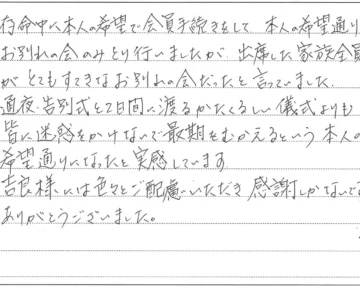 存命中に本人の希望で会員手続きをして 本人の希望通り
お別れの会のみとり行いましたが、出席した家族全員
が とてもすてきなお別れの会だったと言っていました。
通夜、告別式と2日間に渡るかたくるしい儀式よりも
皆に迷惑をかけないで最期をむかえるという 本人の
希望通りになったと実感しています
吉良様には色々とご配慮いただき 感謝しかないです
ありがとうございました。